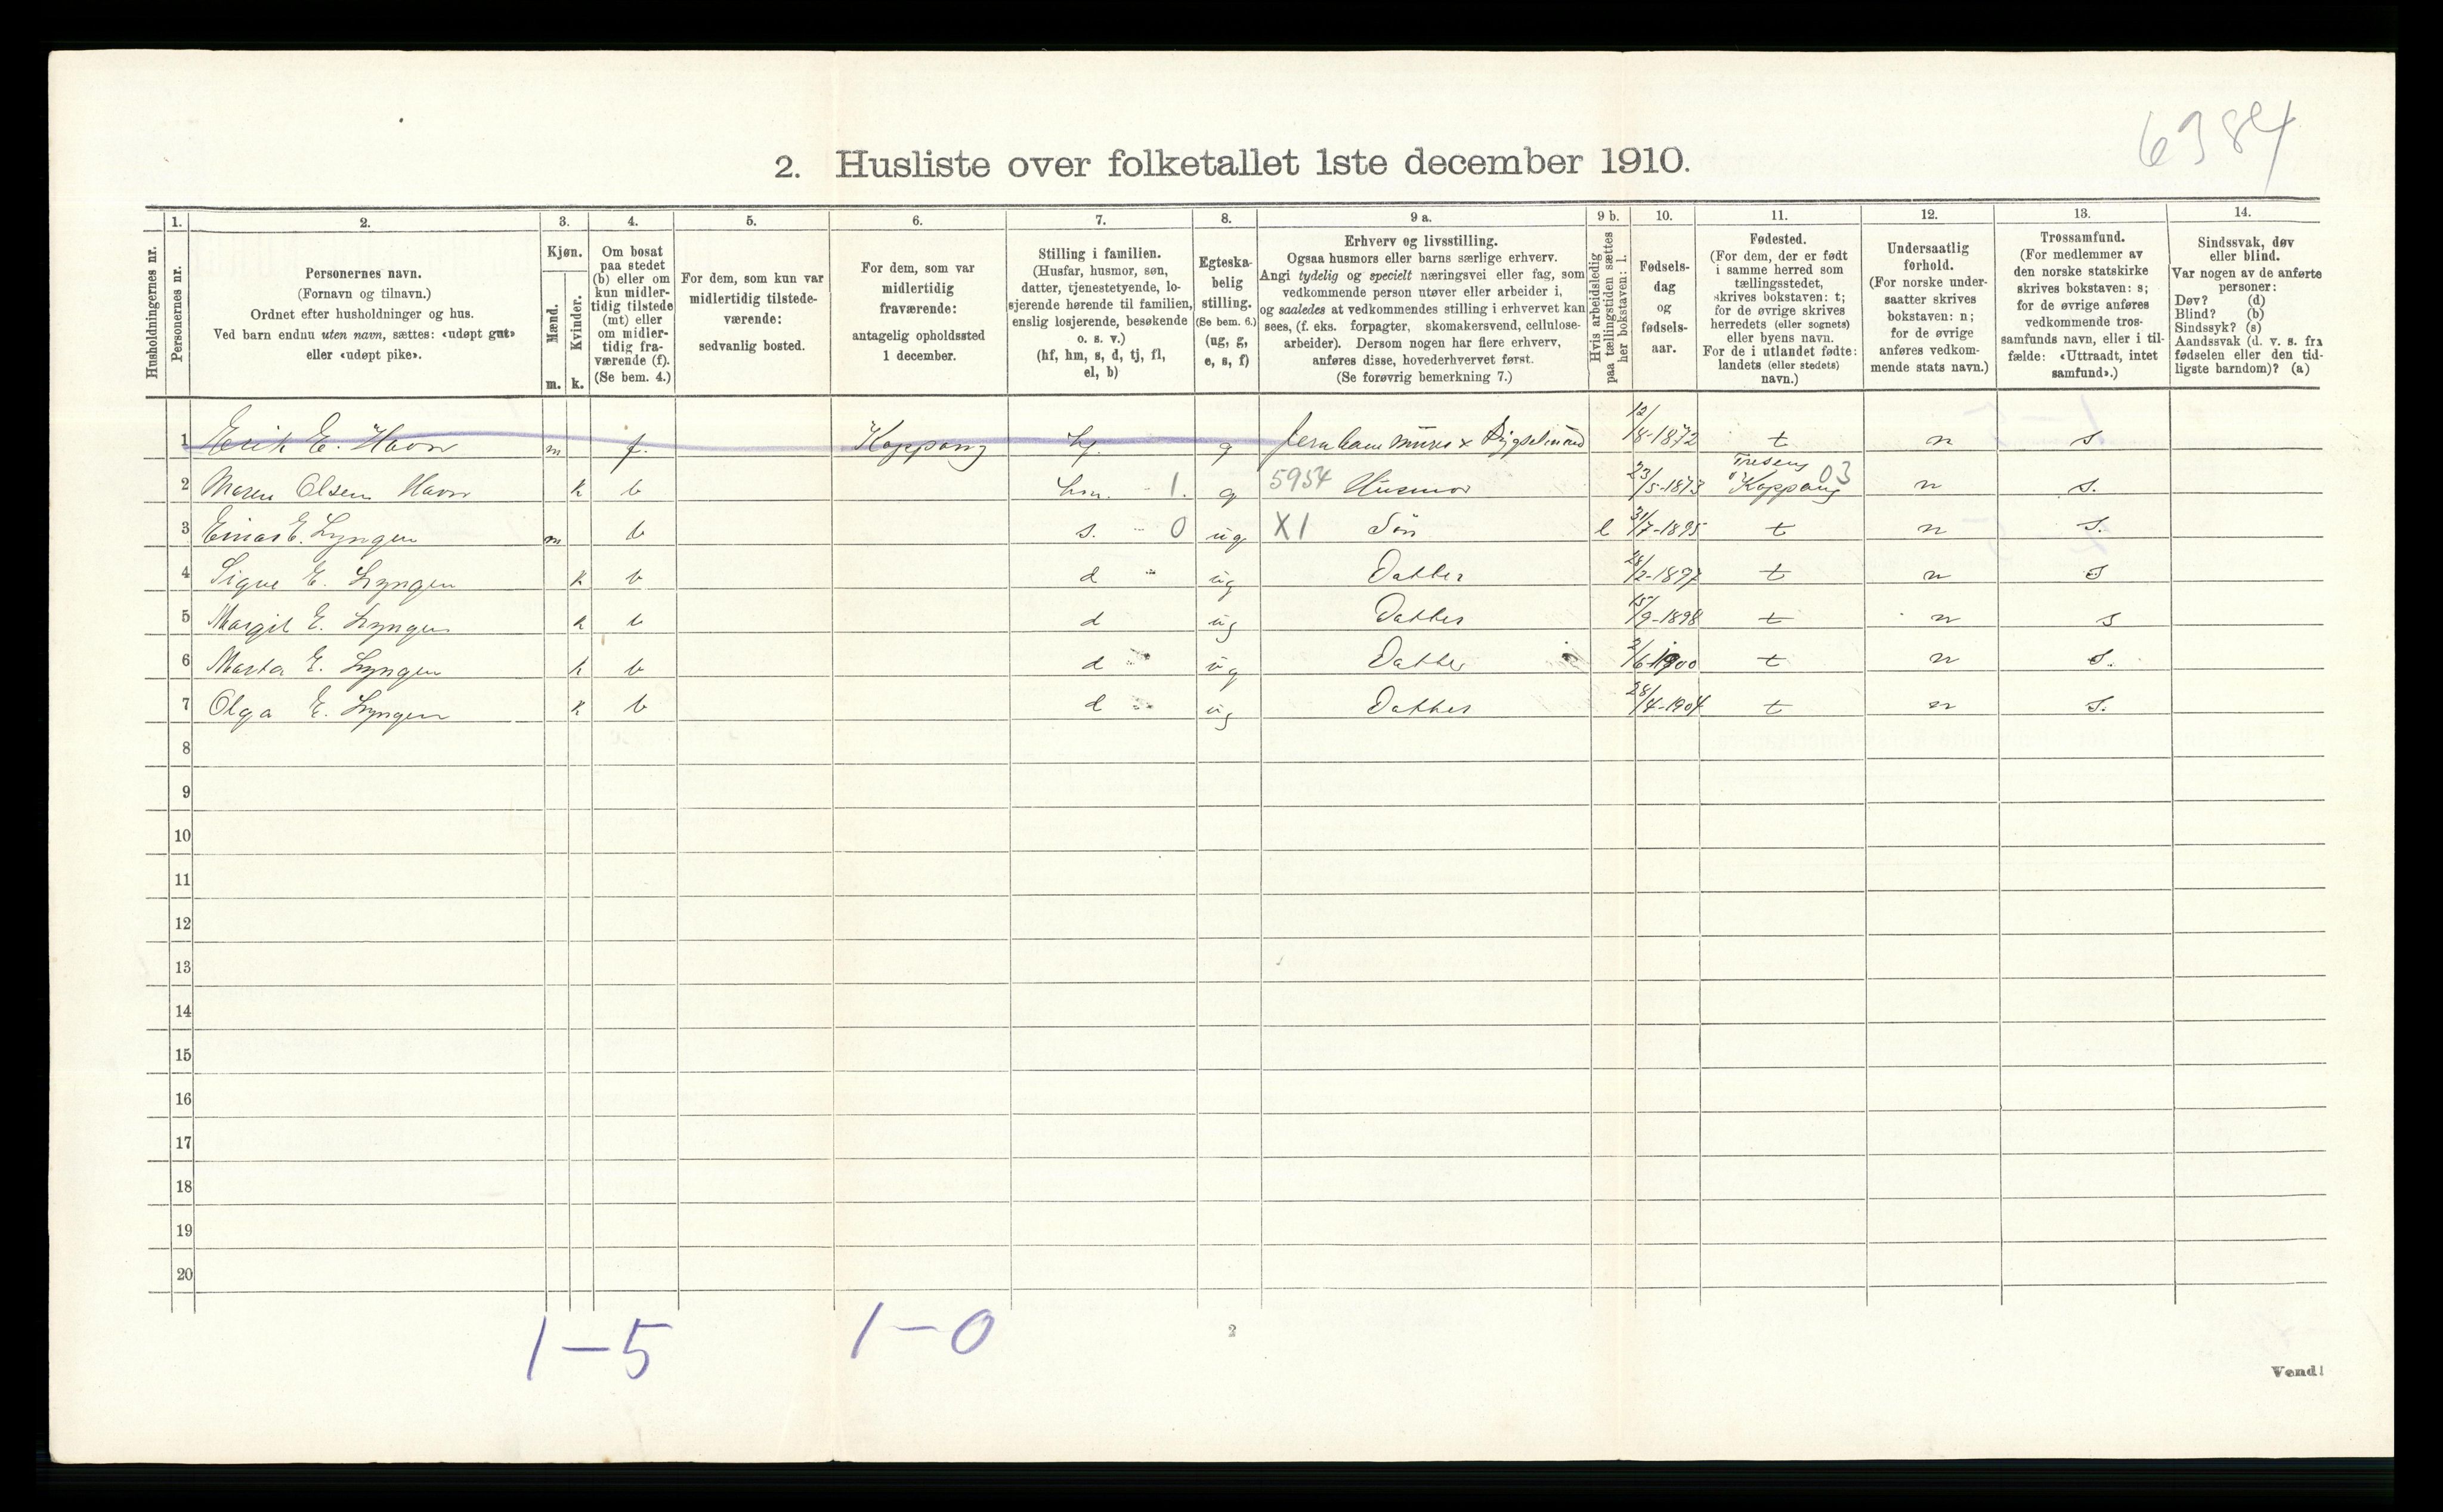 6384
2. Husliste over folketallet 1ste december 1910.
Husholdningernes nr.
1.
Personernes nr.
2.
Personernes navn.
(Fornavn og tilnavn.)
Ordnet efter husholdninger og hus.
Ved barn endnu uten navn, sættes: «udøpt gut»
eller «udøpt pike».
3.
Kjøn.
Mænd.
Kvinder.
m. k.
4.
Om bosat
paa stedet
(b) eller om
kun midler-
tidig tilstede
(mt) eller
om midler-
tidig fra-
værende (f).
(Se bem. 4.)
5.
For dem, som kun var
midlertidig tilstede-
værende:
sedvanlig bosted.
6.
For dem, som var
midlertidig
fraværende:
antagelig opholdssted
1 december.
7.
Stilling i familien.
(Husfar, husmor, søn,
datter, tjenestetyende, lo-
sjerende hørende til familien,
enslig losjerende, besøkende
o. s. v.)
(hf, hm, s, d, tj, fl,
el, b)
8.
Egteska-
belig
stilling.
(Se bem. 6.)
(ug, g,
e, s, f)
9 a.
Erhverv og livsstilling.
Ogsaa husmors eller barns særlige erhverv.
Angi tydelig og specielt næringsvei eller fag, som
vedkommende person utøver eller arbeider i,
og saaledes at vedkommendes stilling i erhvervet kan
sees, (f. eks. forpagter, skomakersvend, cellulose-
arbeider). Dersom nogen har flere erhverv,
anføres disse, hovederhvervet først.
(Se forøvrig bemerkning 7.)
9 b.
Hvis arbeidsledig
paa tællingstiden sættes
her bokstaven: l.
10.
Fødsels-
dag
og
fødsels-
aar.
11.
Fødested.
(For dem, der er født
i samme herred som
tællingsstedet,
skrives bokstaven: t;
for de øvrige skrives
herredets (eller sognets)
eller byens navn.
For de i utlandet fødte:
landets (eller stedets)
navn.)
12.
Undersaatlig
forhold.
(For norske under-
saatter skrives
bokstaven: n;
for de øvrige
anføres vedkom-
mende stats navn.)
13.
Trossamfund.
(For medlemmer av
den norske statskirke
skrives bokstaven: s;
for de øvrige anføres
vedkommende tros-
samfunds navn, eller i til-
fælde: «Uttraadt, intet
samfund».)
14.
Sindssvak, døv
eller blind.
Var nogen av de anførte
personer:
Døv? (d)
Blind? (b)
Sindssyk? (s)
Aandssvak (d. v. s. fra
fødselen eller den tid-
ligste barndom)? (a)
1 Erik E. Havn m f. Koppang hf. g 12/8-1872 t n s
2 Maren Olsen Havn k b hm. - 1. g 5954 Husmor 23/5-1873 Koppang 03 n s.
3 Einar E. Lyngen m b s. - 0 ug X1 Søn l 31/7-1895 t n s.
4 Signe E. Lyngen k b d ug Datter 28/2-1897 t n s
5 Margit E. Lyngen k b d ug Datter 15/9-1898 t n s
6 Marta E. Lyngen k b d ug Datter 2/6-1900 t n s.
7 Olga E. Lyngen k b d ug Datter 28/4-1904 t n s.
8
9
10
11
12
13
14
15
16
17
18
19
20
1-5 1-0
2
Vend!